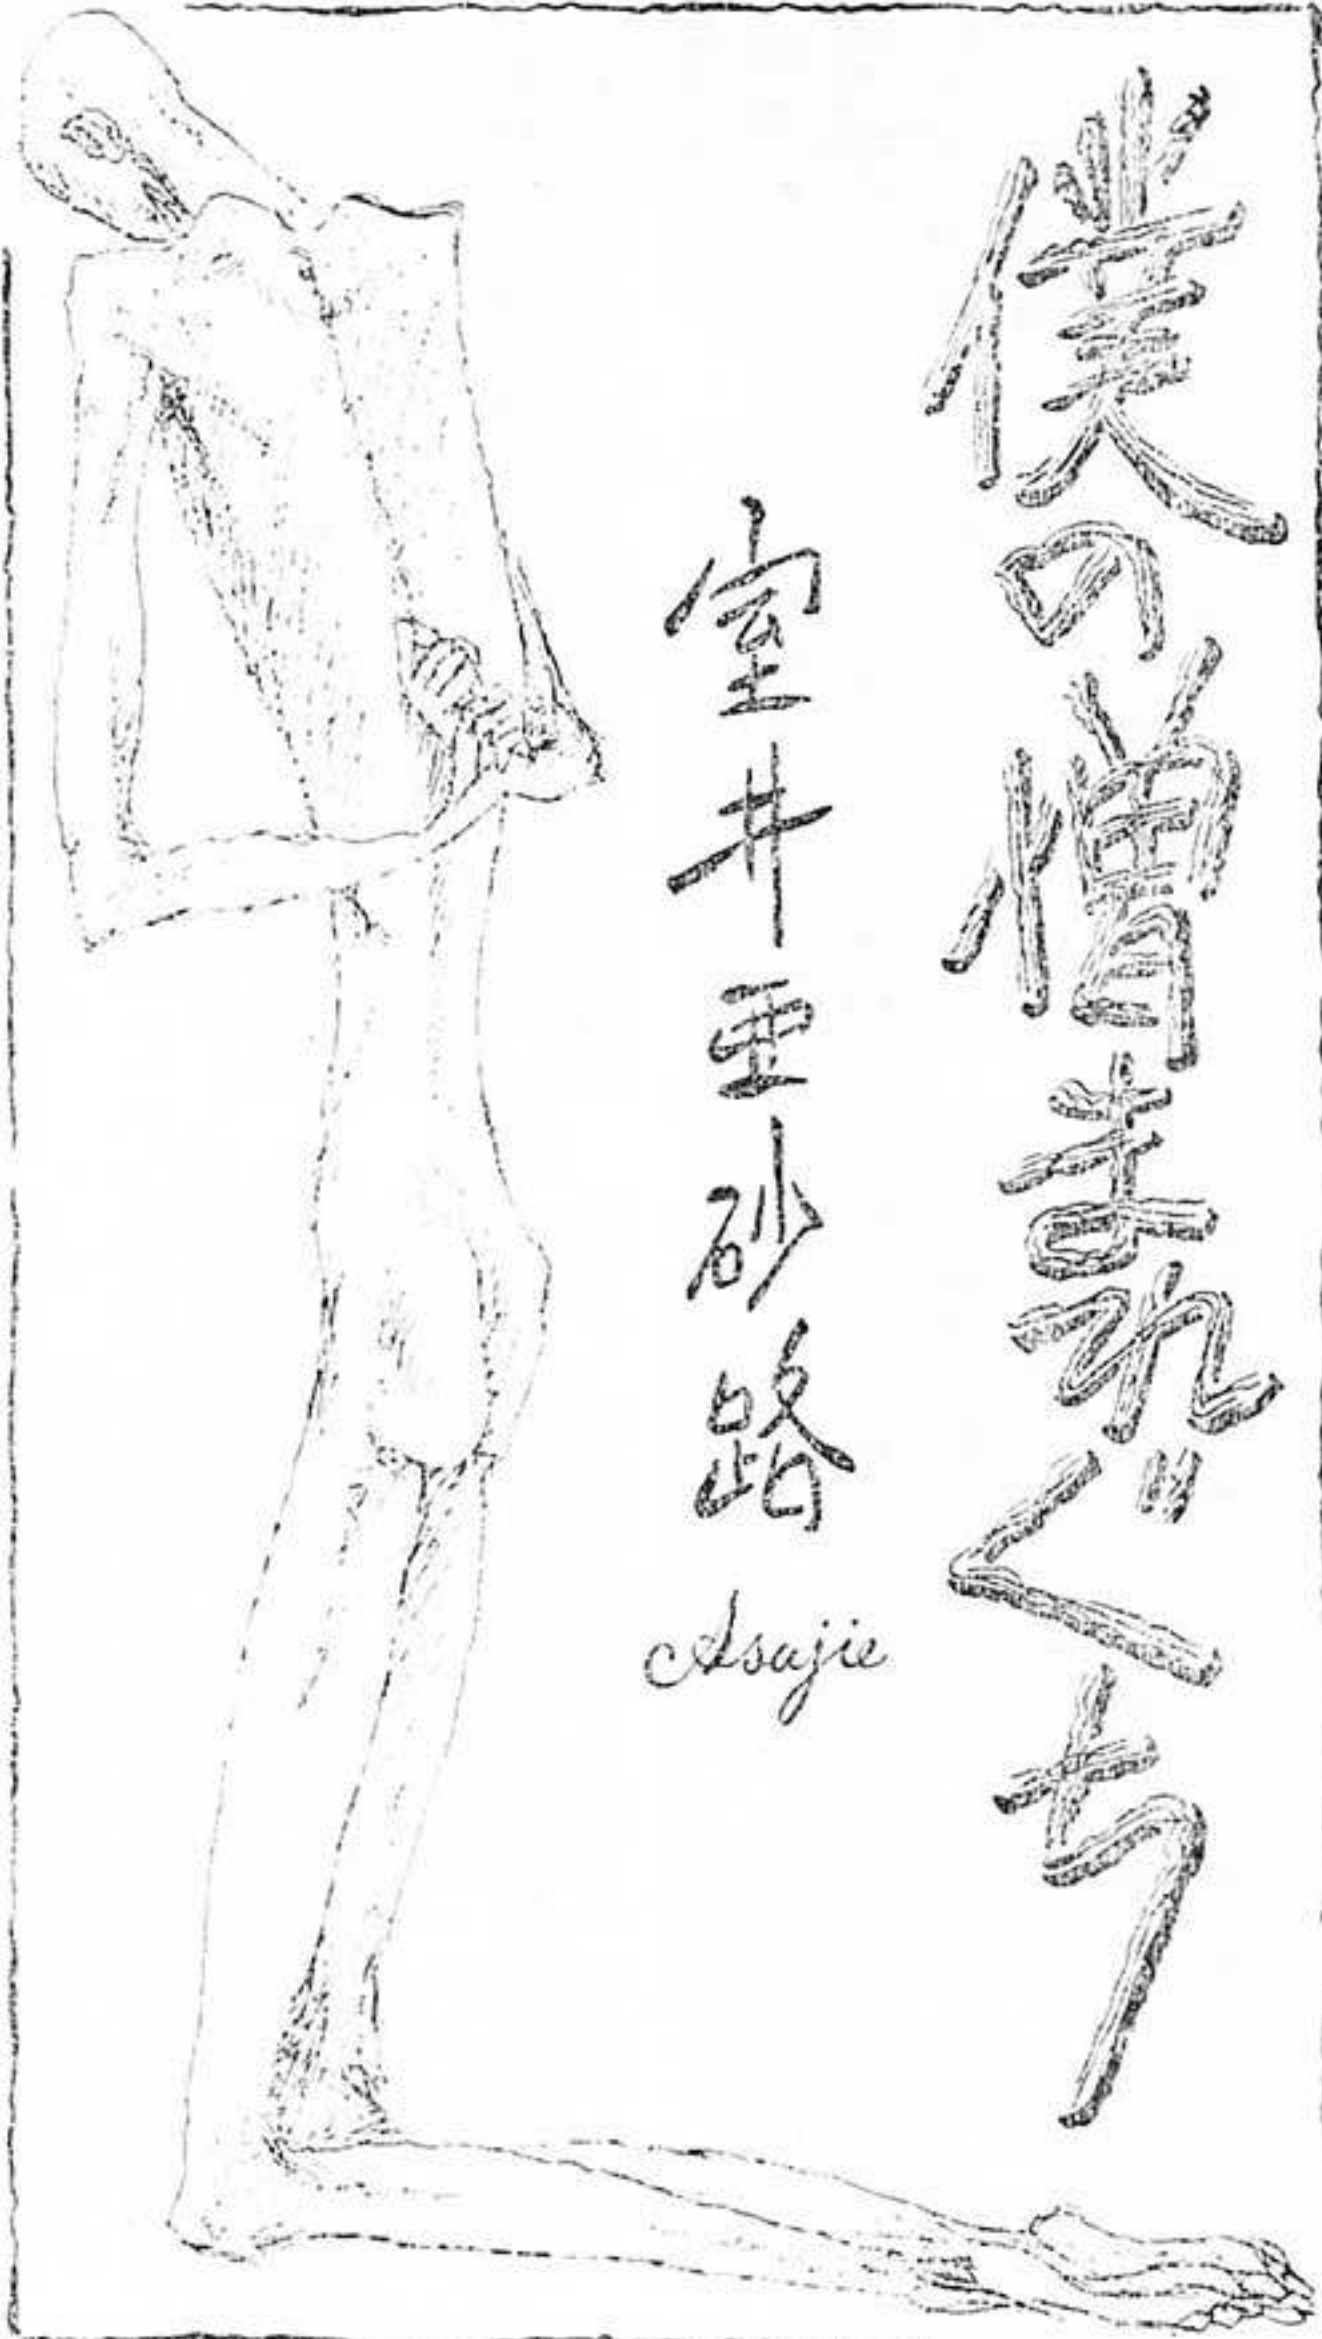 僕の憎まれぐち
室井亜砂路
Asajie